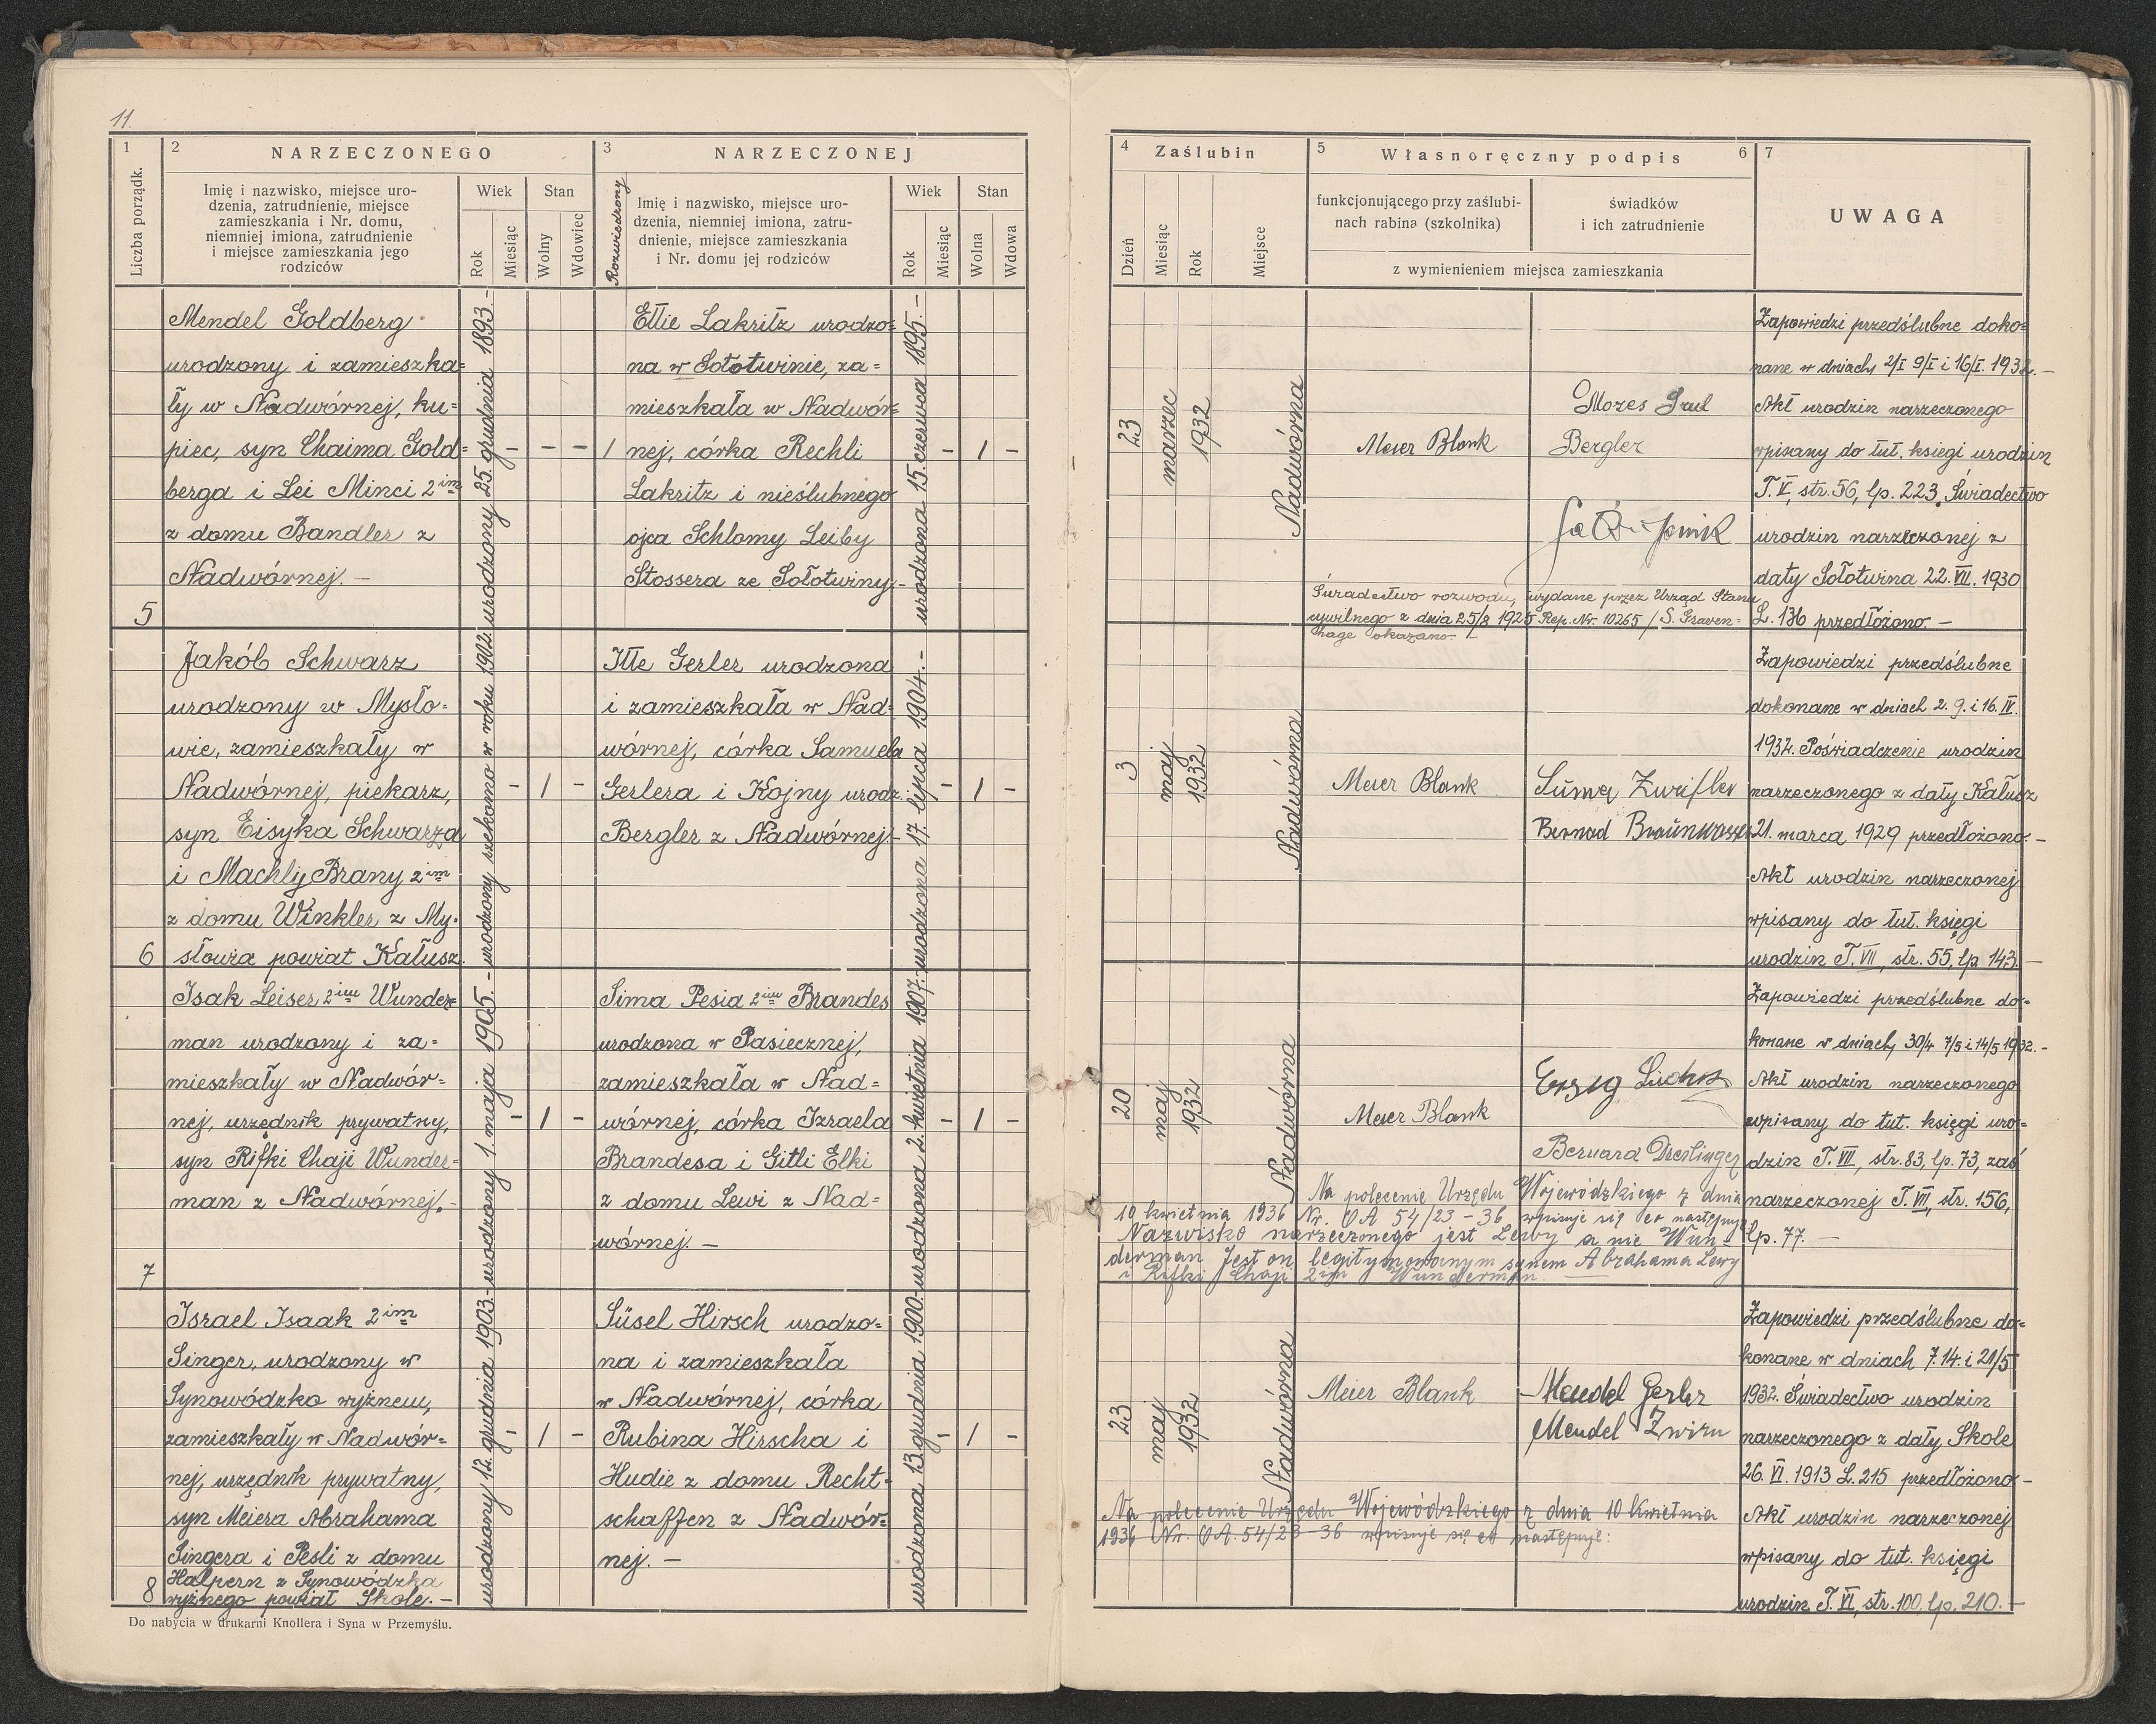 11.
1
Liczba porządk.
2
NARZECZONEGO
Imię i nazwisko, miejsce uro-
dzenia, zatrudnienie, miejsce
zamieszkania i Nr. domu,
niemniej imiona, zatrudnienie
i miejsce zamieszkania jego
rodziców
Wiek
Rok
Miesiąc
Stan
Wolny
Wdowiec
Rozwiedziony
3
NARZECZONEJ
Imię i nazwisko, miejsce uro-
dzenia, niemniej imiona, zatru-
dnienie, miejsce zamieszkania
i Nr. domu jej rodziców
Wiek
Rok
Miesiąc
Stan
Wolna
Wdowa
4
Zaślubin
Dzień
Miesiąc
Rok
Miejsce
5
Własnoręczny podpis
6
funkcjonującego przy zaślubi-
nach rabina (szkolnika)
świadków
i ich zatrudnienie
z wymienieniem miejsca zamieszkania
7
UWAGA
5
Mendel Goldberg
urodzony i zamieszka=
ły w Nadwórnej, ku=
piec, syn Chaima Gold=
berga i Lei Minci 2im
z domu Bandler z
Nadwórnej. —
urodzony 25. grudnia 1893.-
- - - 1
Ettie Lakritz urodzo=
na w Sołotwinie, za=
mieszkała w Nadwór=
nej, córka Rechli
Lakritz i nieślubnego
ojca Schlomy Leiby
Stossera ze Sołotwiny.-
urodzona 15. czerwca 1895.-
- 1 -
23
marzec
1932
Nadwórna
Meier Blank
Mozes
Bergler
Świadectwo rozwodu, wydane przez Urząd Stanu
cywilnego z dnia 25/8 1925 Rep. Nr. 10265 / S. Graven=
hage okazano. -
Zapowiedzi przedślubne doko=
nane w dniach 2/I 9/I i 16/I. 1932.-
Akt urodzin narzeczonego
wpisany do tut. księgi urodzin
T. V, str. 56, lp. 223. Świadectwo
urodzin narzeczonej z
daty Sołotwina 22. VII. 1930
L. 136 przedłożono. -
6
Jakób Schwarz
urodzony w Mysło=
wie, zamieszkały w
Nadwórnej, piekarz,
syn Eisyka Schwarza
i Machly Brany 2im
z domu Winkler z My-
słowa powiat Kałusz.
urodzony rzekomo w roku 1902.
- 1 -
Itte Gerler urodzona
i zamieszkała w Nad=
wórnej, córka Samuela
Gerlera i Kojny urodz.
Bergler z Nadwórnej.-
urodzona 17. lipca 1904.-
- 1 -
3
maj
1932
Nadwórna
Meier Blank
Zapowiedzi przedślubne
dokonane w dniach 2. 9. i 16. IV.
1932. Poświadczenie urodzin
narzeczonego z daty Kałusz
21. marca 1929 przedłożono.-
Akt urodzin narzeczonej
wpisany do tut. księgi
urodzin T. VII, str. 55, lp. 143. -
7
Isak Leiser 2im Wunder=
man urodzony i za=
mieszkały w Nadwór=
nej, urzędnik prywatny,
syn Rifki Chaji Wunder=
man z Nadwórnej.-
urodzony 1. maja 1905.-
- 1 -
Sima Pesia 2im Brandes
urodzona w Pasiecznej,
zamieszkała w Nad=
wórnej, córka Izraela
Brandesa i Gitli Elki
z domu Lewi z Nad=
wórnej. —
urodzona 2. kwietnia 1907.-
- 1 -
20
maj
1932
Nadwórna
Meier Blank
Bernard
Na polecenie Urzędu Wojewódzkiego z dnia
10 kwietnia 1936 Nr. OA 54/23-36 wpisuje się co następuje
Nazwisko narzeczonego jest Lewy a nie Wun-
derman Jest on legitymowanym synem Abrahama Lewy
i Rifki Chaji 2im Wunderman. —
Zapowiedzi przedślubne do-
konane w dniach 30/4 7/5 i 14/5 1932.-
Akt urodzin narzeczonego
wpisany do tut. księgi uro=
dzin T. VII, str. 83, lp. 73, zaś
narzeczonej T. VII, str. 156,
lp. 77. —
8
Israel Isaak 2im
Singer, urodzony w
Synowódzko wyżnem,
zamieszkały w Nadwór=
nej, urzędnik prywatny,
syn Meiera Abrahama
Singera i Pesli z domu
Halpern z Synowódzka
wyżnego powiat Skole. -
urodzony 12. grudnia 1903.-
- 1 -
Süsel Hirsch urodzo=
na i zamieszkała
w Nadwórnej, córka
Rubina Hirscha i
Hudie z domu Recht=
schaffen z Nadwór=
nej. —
urodzona 13. grudnia 1900.-
- 1 -
23
maj
1932
Nadwórna
Meier Blank
Mendel Gerler
Mendel Zwirn
Na polecenie Urzędu Wojewódzkiego z dnia 10 kwietnia
1936 Nr. OA. 54/23-36 wpisuje się co następuje:
Zapowiedzi przedślubne do=
konane w dniach 7. 14. i 21/5
1932. Świadectwo urodzin
narzeczonego z daty Skole
26. VI. 1913 L. 215 przedłożono -
Akt urodzin narzeczonej
wpisany do tut. księgi
urodzin T. VI, str. 100, lp. 210. -
Do nabycia w drukarni Knollera i Syna w Przemyślu.